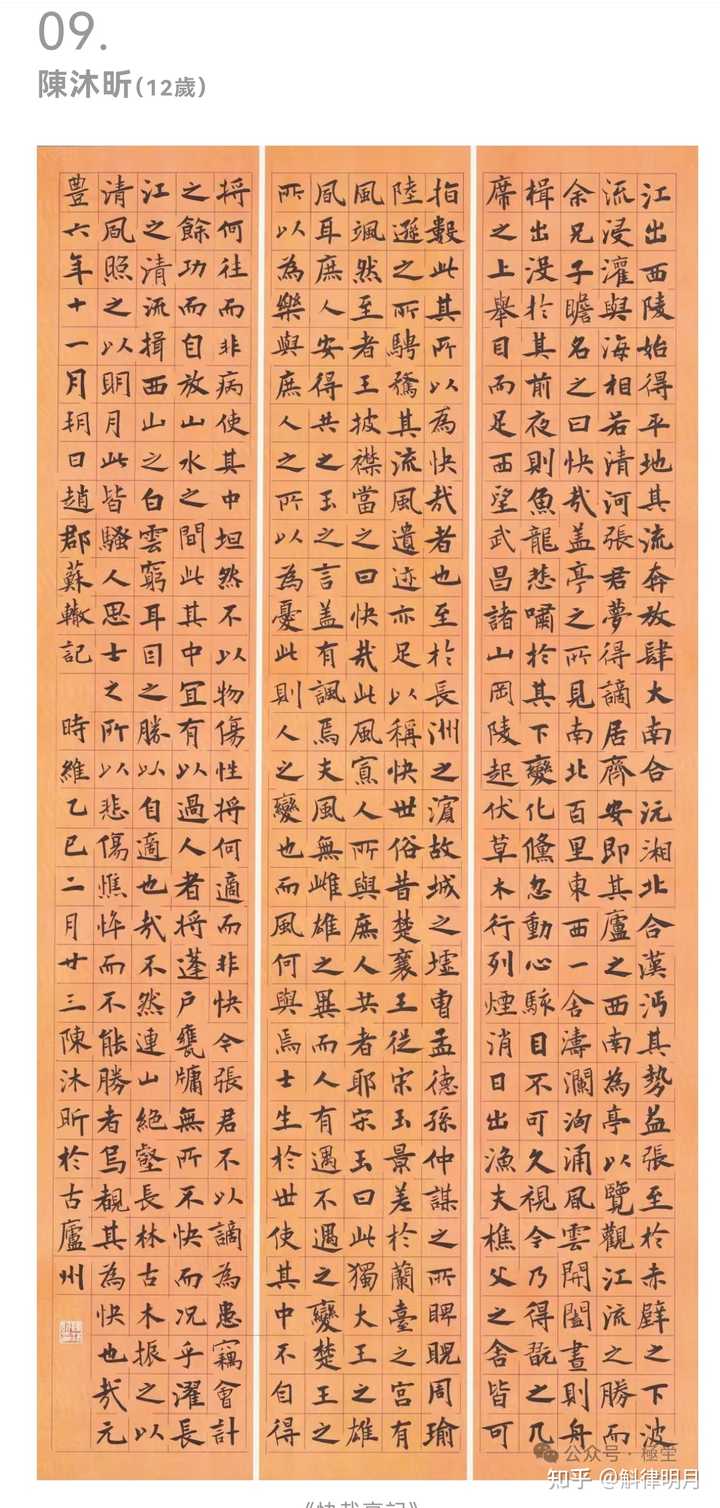 09.
陳沐昕(12歲)
江出西陵始得平地其流奔放肆大南合沅湘北合漢沔其勢益張至於赤壁之下波
流浸灌與海相若清河張君夢得謫居齊安即其廬之西南為亭以覽觀江流之勝而
余兄子瞻名之曰快哉盖亭之所見南北百里東西一舍濤瀾洶涌風雲開闔晝則舟
楫出沒於其前夜則魚龍悲嘯於其下變化倏忽動心駭目不可久視今乃得翫之几
席之上舉目而足西望武昌諸山岡陵起伏草木行列煙消日出漁夫樵父之舍皆可
指數此其所以為快哉者也至於長洲之濵故城之墟曹孟德孫仲謀之所睥睨周瑜
陸遜之所騁騖其流風遺迹亦足以稱快世俗昔楚襄王從宋玉景差於蘭臺之宮有
風颯然至者王披襟當之曰快哉此風寡人所與庶人共者耶宋玉曰此獨大王之雄
風耳庶人安得共之玉之言盖有諷焉夫風無雌雄之異而人有遇不遇之變楚王之
所以為樂與庶人之所以為憂此則人之變也而風何與焉士生於世使其中不自得
將何往而非病使其中坦然不以物傷性將何適而非快今張君不以謫為患竊會計
之餘功而自放山水之間此其中宜有以過人者將蓬戶甕牖無所不快而况乎濯長
江之清流揖西山之白雲窮耳目之勝以自適也哉不然連山絕壑長林古木振之以
清風照之以明月此皆騷人思士之所以悲傷憔悴而不能勝者烏覩其為快也哉元
豊六年十一月朔日趙郡蘇轍記 時維乙巳二月廿三陳沐昕於古廬州
公众号·極堂
知乎 @斛律明月